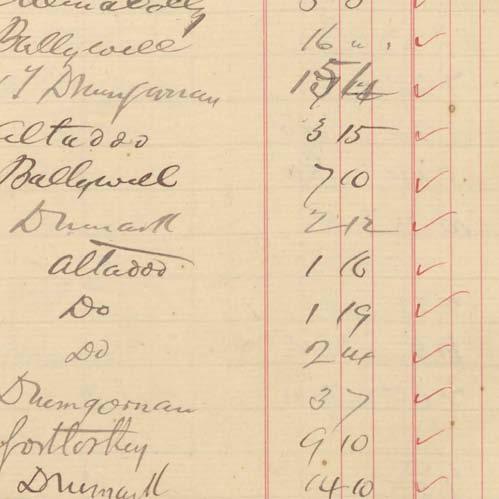 Ballywell 16 " .
Drumgornan
Altadoo 3 15
Ballywell 7 10
Drumark 2 12
Altadoo 1 16
Do 1 19
Do 2 14
Drumgornan 3 7
Gortloskey 9 10
Drumark 14 10